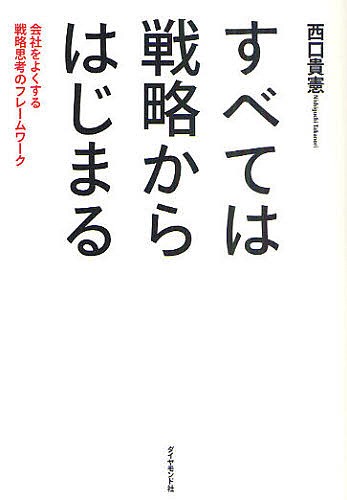 西口貴憲
Nishiguchi Takanori
すべては
戦略から
はじまる
会社をよくする
戦略思考のフレームワーク
ダイヤモンド社